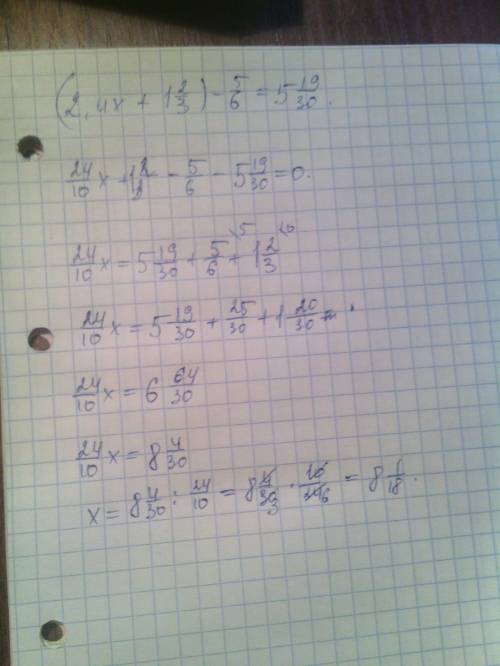 (2,4x + 1 2/3) - 5/6 = 5 19/30.
24/10 x + 1 2/3 - 5/6 - 5 19/30 = 0.
24/10 x = 5 19/30 + 5/6 \5 + 1 2/3 \10
24/10 x = 5 19/30 + 25/30 + 1 20/30
24/10 x = 6 64/30
24/10 x = 8 4/30
x = 8 4/30 : 24/10 = 8 4/30 3 · 10/24 6 = 8 1/18.